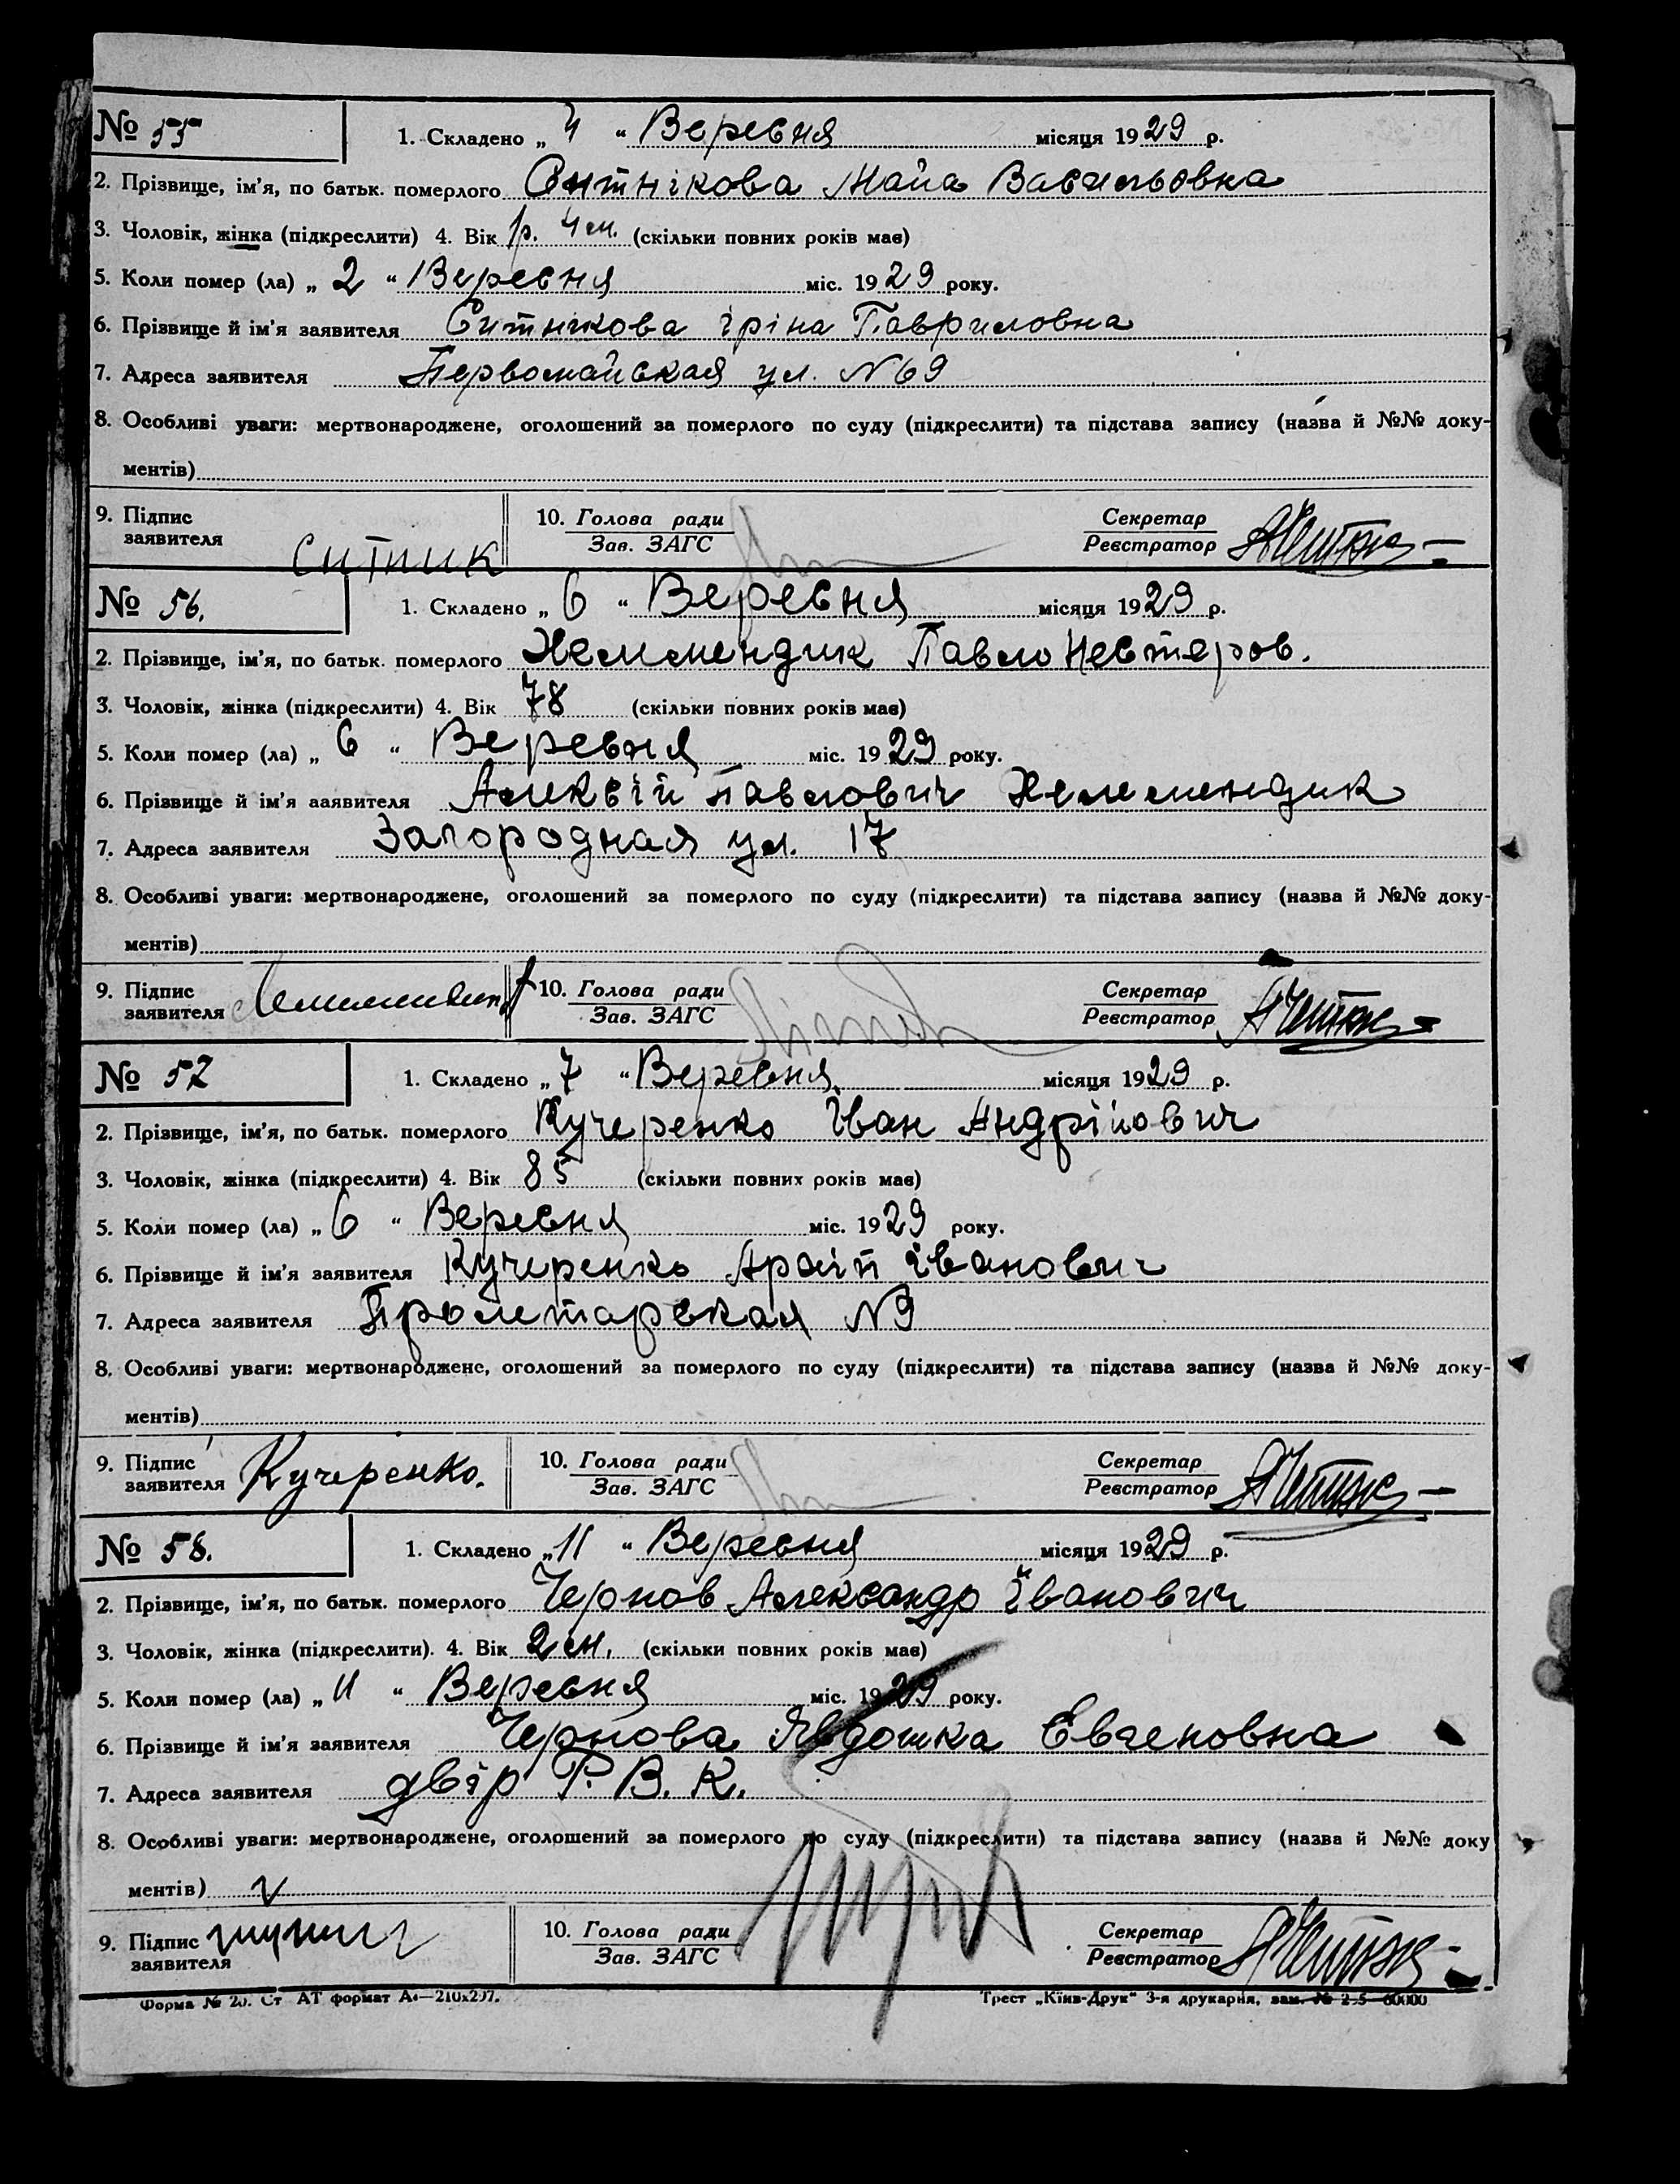 № 55
1. Складено „ 4 “ Вересня місяця 1929 р.
2. Прізвище, ім'я, по батьк. померлого Ситнікова Майа Васильовна
3. Чоловік, жінка (підкреслити) 4. Вік 1р. 4 м. (скільки повних років має)
5. Коли помер (ла) „ 2 “ Вересня міс. 1929 року.
6. Прізвище й ім'я заявителя Ситнікова Іріна Гавриловна
7. Адреса заявителя Первомайская ул. №69
8. Особливі уваги: мертвонароджене, оголошений за померлого по суду (підкреслити) та підстава запису (назва й №№ доку-
ментів)
9. Підпис заявителя Ситник
10. Голова ради Зав. ЗАГС
Секретар Реєстратор
№ 56.
1. Складено „ 6 “ Вересня місяця 1929 р.
2. Прізвище, ім'я, по батьк. померлого Павло Нестеров.
3. Чоловік, жінка (підкреслити) 4. Вік 78 (скільки повних років має)
5. Коли помер (ла) „ 6 “ Вересня міс. 1929 року.
6. Прізвище й ім'я заявителя Алексій Павлович
7. Адреса заявителя Загородная ул. 17
8. Особливі уваги: мертвонароджене, оголошений за померлого по суду (підкреслити) та підстава запису (назва й №№ доку-
ментів)
9. Підпис заявителя
10. Голова ради Зав. ЗАГС
Секретар Реєстратор
№ 57
1. Складено „ 7 “ Вересня місяця 1929 р.
2. Прізвище, ім'я, по батьк. померлого Кучеренко Іван Андрійович
3. Чоловік, жінка (підкреслити) 4. Вік 85 (скільки повних років має)
5. Коли помер (ла) „ 6 “ Вересня міс. 1929 року.
6. Прізвище й ім'я заявителя Кучеренко Іванович
7. Адреса заявителя Пролетарская №9
8. Особливі уваги: мертвонароджене, оголошений за померлого по суду (підкреслити) та підстава запису (назва й №№ доку-
ментів)
9. Підпис заявителя Кучеренко.
10. Голова ради Зав. ЗАГС
Секретар Реєстратор
№ 58.
1. Складено „ 11 “ Вересня місяця 1929 р.
2. Прізвище, ім'я, по батьк. померлого Чернов Александр Іванович
3. Чоловік, жінка (підкреслити). 4. Вік 2 м. (скільки повних років має)
5. Коли помер (ла) „ 11 “ Вересня міс. 1929 року.
6. Прізвище й ім'я заявителя Чернова Явдошка Евгеновна
7. Адреса заявителя двір Р. В. К.
8. Особливі уваги: мертвонароджене, оголошений за померлого по суду (підкреслити) та підстава запису (назва й №№ доку
ментів)
9. Підпис заявителя
10. Голова ради Зав. ЗАГС
Секретар Реєстратор
Форма № 20. Ст АТ формат А4—210х297.
Трест „Київ-Друк“ 3-я друкарня, зам.